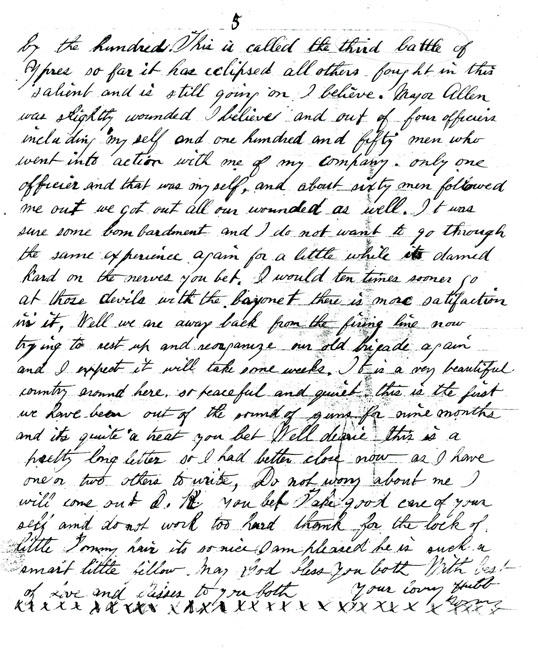 5
by the hundred. This is called the third battle of
Ypres so far it has eclipsed all others fought in this
salient and is still going on I believe. Major Allen
was slightly wounded I believe and out of four officers
including my self and one hundred and fifty men who
went into action with me of my company. only one
officier and that was my self, and about sixty men followed
me out we got out all our wounded as well. It was
sure some bombardment and I do not want to go through
the same experience again for a little while its damed
hard on the nerves you bet. I would ten times sooner go
at those devils with the bayonet there is more satifaction
in it, Well we are away back from the firing line now
trying to rest up and reorganize our old brigade again
and I expect it will take some weeks. It is a very beautiful
country around here. so peaceful and quiet. this is the first
we have been out of the sound of guns for nine months
and its quite a treat you bet Well dearie this is a
pretty long letter so I had better close now as I have
one or two others to write, Do not worry about me I
will come out O.K. you bet Take good care of your
self and do not work too hard thank for the lock of
little Tommy hair its so nice I am pleased he is such a
smart little fellow May God bless you both With best
of love and kisses to you both your loving
x x x x x x x x x x x x x x x x x x x x x x